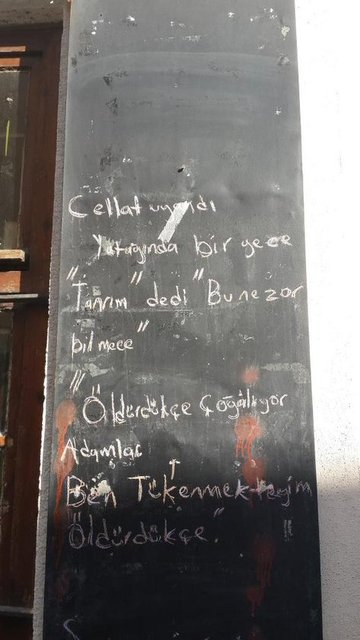 Cellat uyandı
Yatağında bir gece
"Tanrım" dedi "Bu ne zor
bilmece"
"Öldürdükçe Çoğalıyor
Adamlar
Ben Tükenmekteyim
Öldürdükçe."